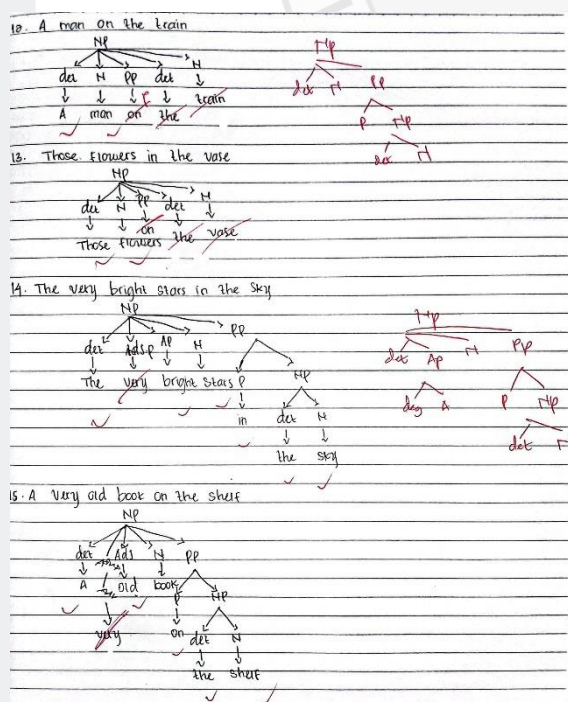 12. A man on the train
NP
det N PP det N
A man on the train
P
Np
det N Pp
P Np
det N
13. Those flowers in the vase
NP
det N PP det N
Those flowers on the vase
14. The very bright stars in the sky
NP
det Adsp AP N PP
The very bright stars P NP
in det N
the sky
Np
det Ap N Pp
deg A P Np
det N
15. A very old book on the shelf
NP
det Ads N PP
A old book P NP
very on det N
the shelf